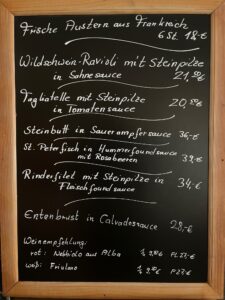 Frische Austern aus Frankreich
6 St. 18.-€
Wildschwein-Ravioli mit Steinpilze
in Sahnesauce 21,50€
Tagliatelle mit Steinpilze
in Tomatensauce 20,50€
Steinbutt in Sauerampfersauce 36,-€
St. Petersfisch in Hummerfoundsauce
mit Rosabeeren 39,-€
Rinderfilet mit Steinpilze in 34,-€
Fleischfoundsauce
Entenbrust in Calvadossauce 28,-€
Weinempfehlung:
rot: Nebbiolo aus Alba
weiß: Friulano